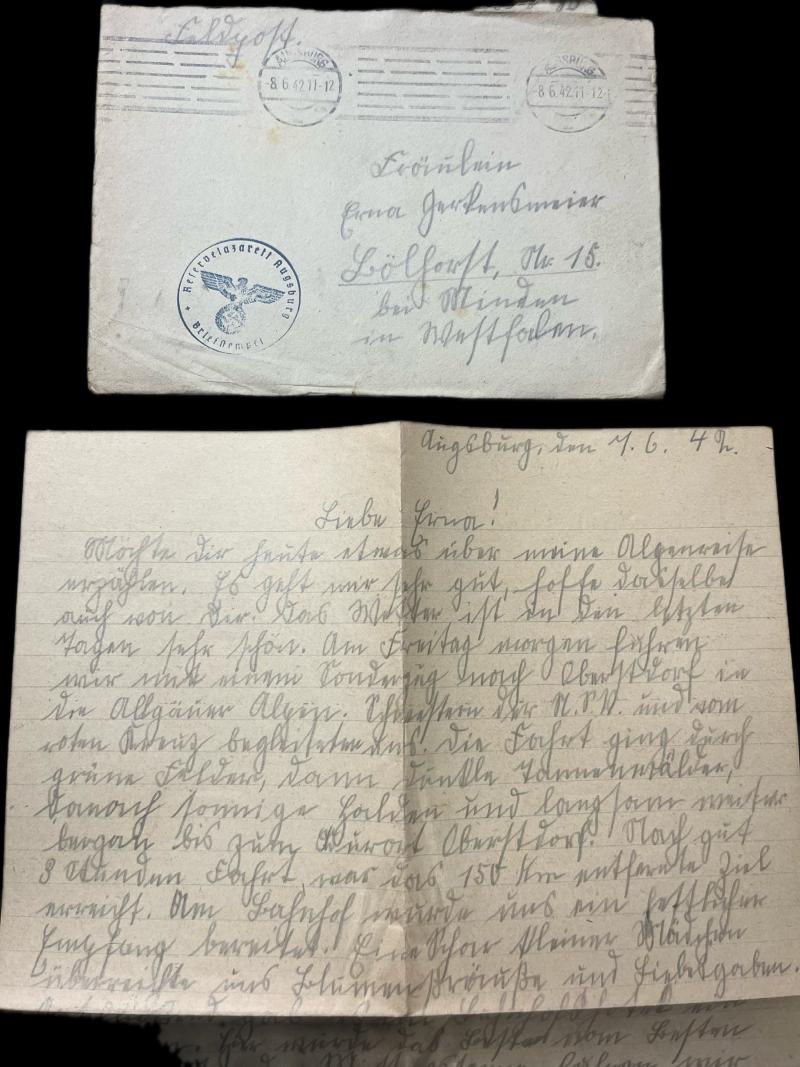 Feldpost.
AUGSBURG
-8.6.42.11-12
AUGSBURG
-8.6.42.11-12
Fräulein
Erna Gerkensmeier
Bölhorst, Nr. 15.
bei Minden
in Westfalen.
Reservelazarett Augsburg
Briefstempel
Augsburg, den 7.6.42.
Liebe Erna!
Möchte dir heute etwas über meine Alpenreise
erzählen. Es geht mir sehr gut, hoffe dasselbe
auch von Dir. Das Wetter ist in den letzten
Tagen sehr schön. Am Freitag morgen fuhren
wir mit einem Sonderzug nach Oberstdorf in
die Allgäuer Alpen. Schwestern der N.S.V. und vom
roten Kreuz begleiteten uns. Die Fahrt ging durch
grüne Felder, dann dunkle Tannenwälder,
danach sonnige Halden und langsam weiter
bergan bis zum Kurort Oberstdorf. Nach gut
3 Stunden Fahrt war das 150 Km entfernte Ziel
erreicht. Am Bahnhof wurde uns ein festlicher
Empfang bereitet. Eine Schar kleiner Mädchen
überreichte uns Blumensträuße und Liebesgaben.
wurde das Beste vom Besten
fuhren wir